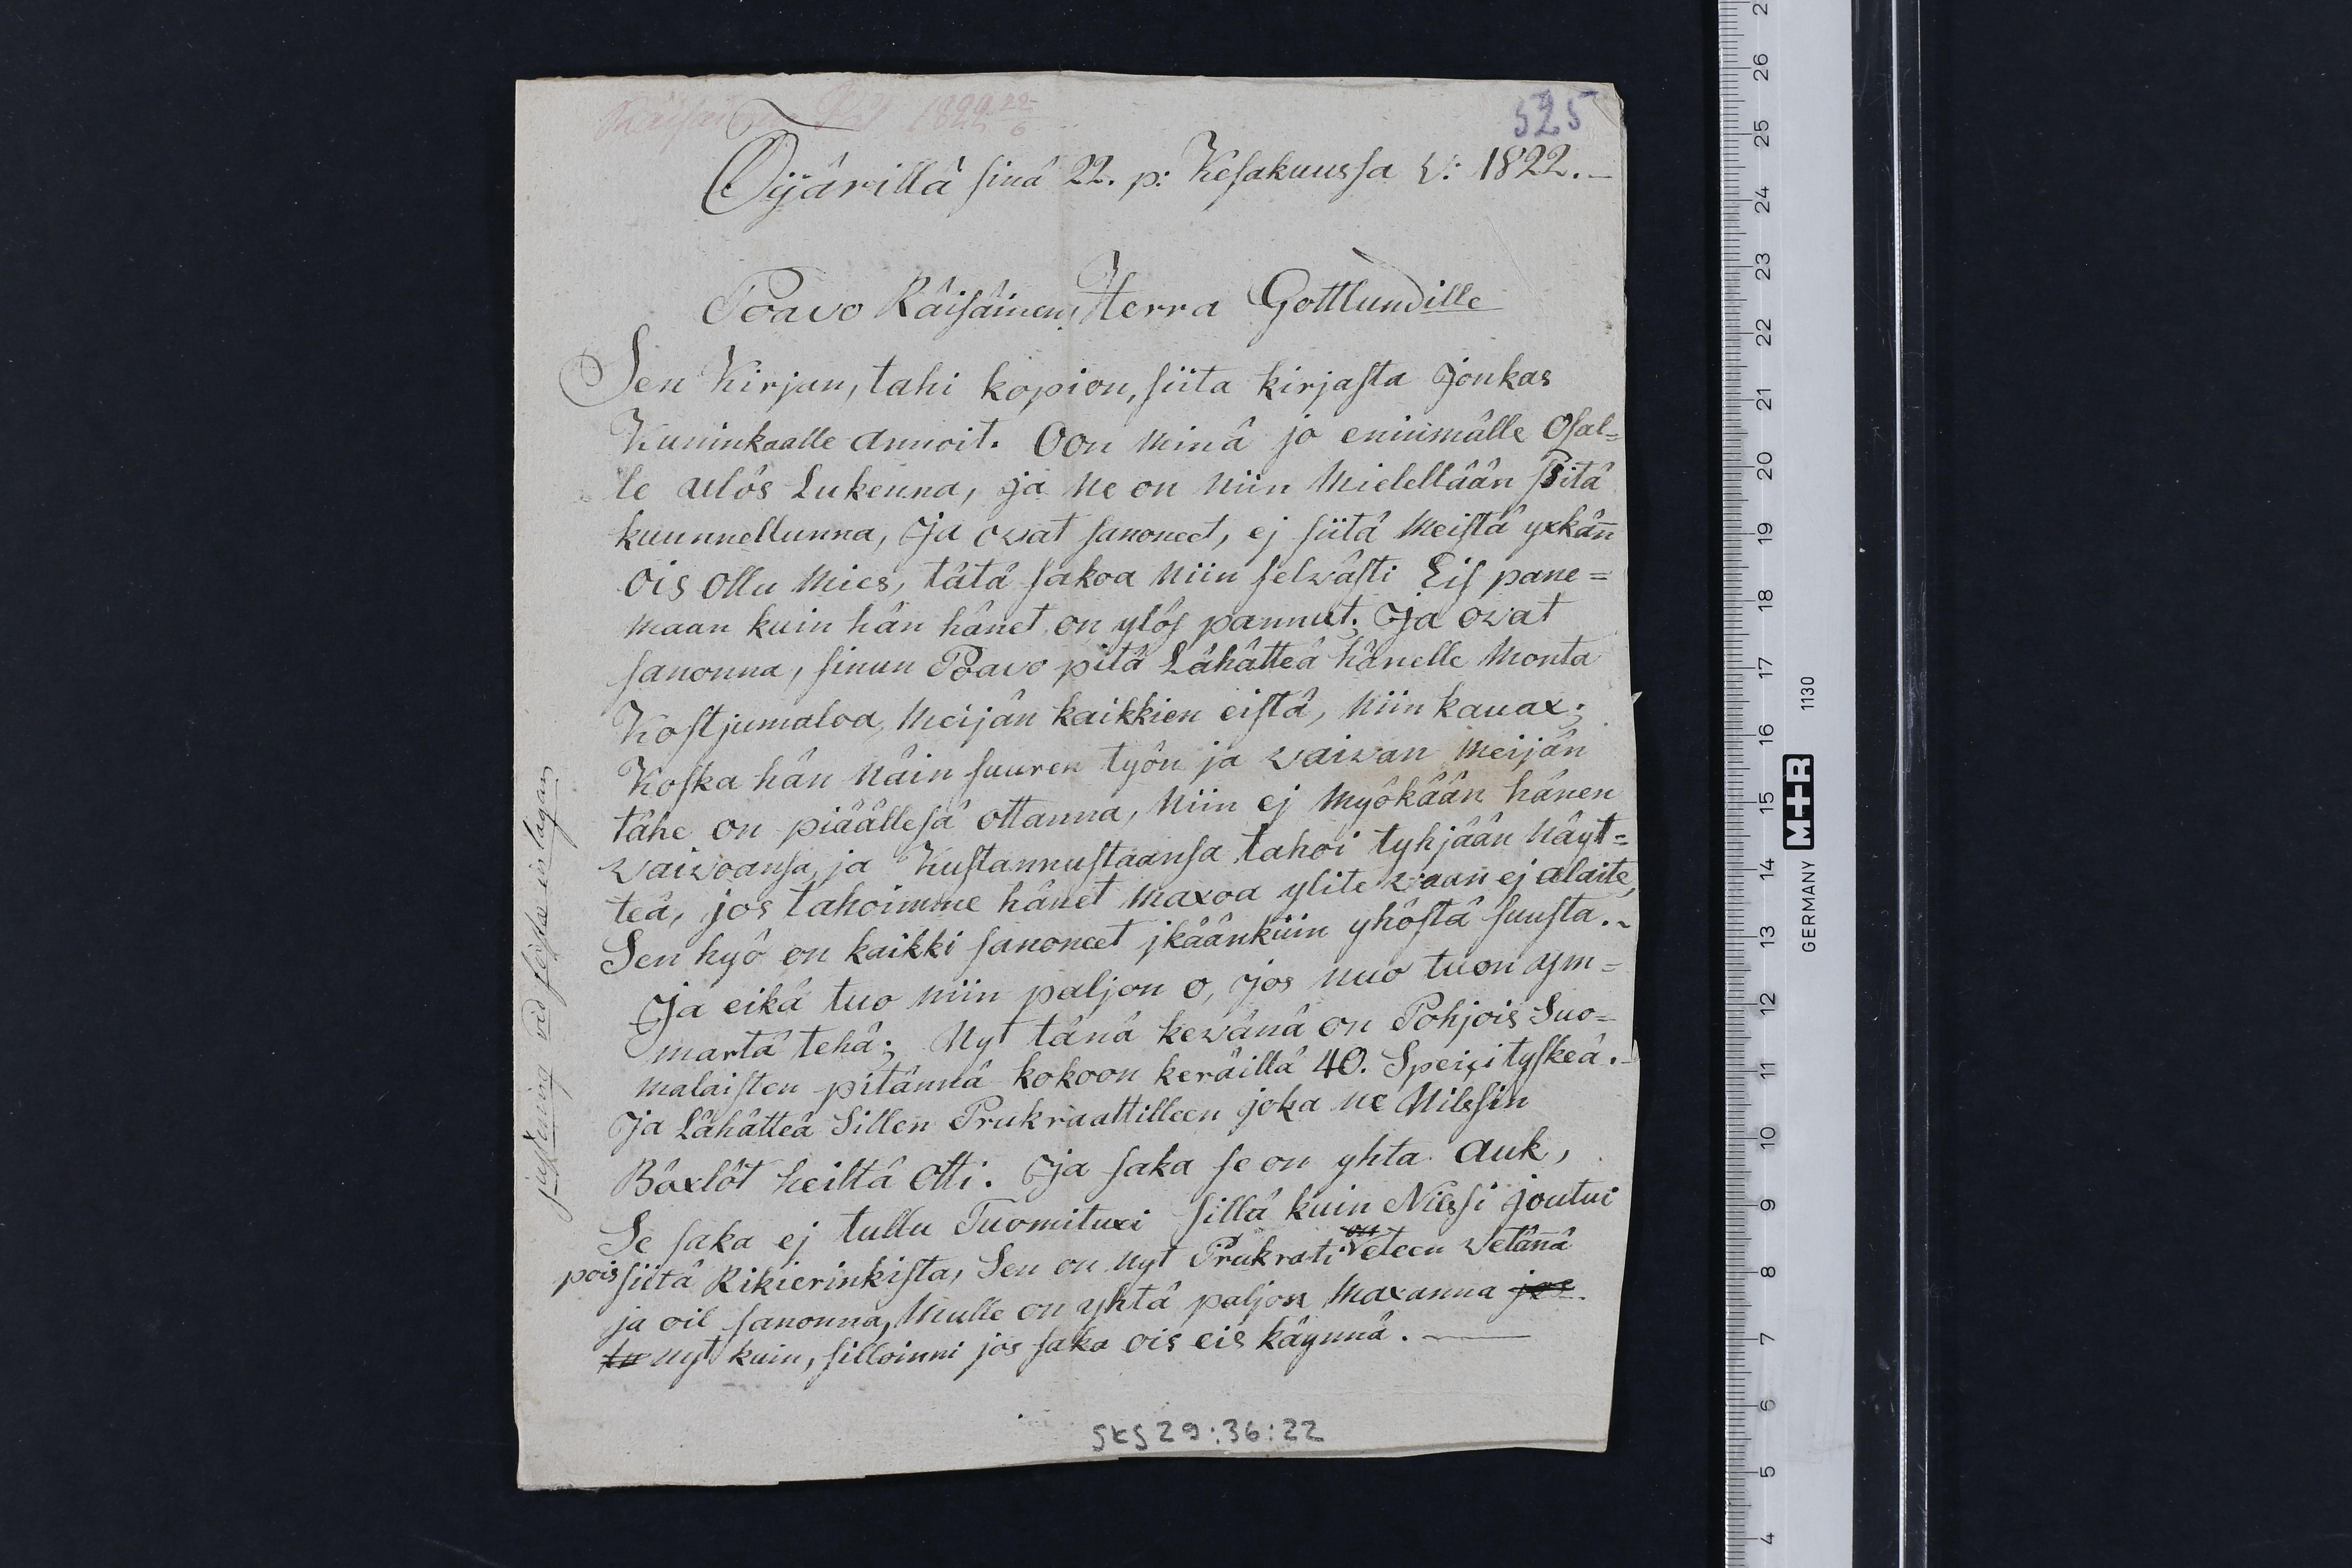 525
Öyjärillä sinä 22. p: Kesakuussa v: 1822.–
Poavo Räisäinen, Herra Gottlundille
Sen Kirjan, tahi kopion, siita kirjasta jonkas
Kuninkaalle annoit. Oon minä jo eniimälle Osal=
le ulos Lukenna, ja ne on niin Mielellään sitä
kuunnellunna, ja ovat sanoneet, ej siitä meistä yxkän̄
ois ollu mies, tätä sakoa niin selvästi Eis pane=
maan kuin hän hänet on ylös pannut; ja ovat
sanonna, sinun Poavo pitä Lähätteä hänelle Monta
Kostjumaloa, Meijän kaikkien eistä, niin kauax;
Koska hän näin suuren työn ja vaivan meijän
tähe on piäällesä ottanna, niin ej myökään hänen
vaivoansa ja Kustannustaansa tahoi tyhjään näyt=
teä, jos tahoimme hänet maxoa ylite vaan ej alaite,
Sen hyö on kaikki sanoneet jkäänkuin yhöstä suusta.~
Ja eikä tuo niin paljon o, jos nuo tuon ym=
martä tehä; Nyt tänä kevänä on Pohjois Suo=
malaisten pitännä kokoon keräillä 40. Speiçi tyskeä.–
Ja Lähätteä Sillen Prukraattilleen joka ne Nilssin
Böxlöt heiltä Otti. Ja saka se on yhta auk,
Se saka ej tullu Tuomituxi sillä kuin Nilssi joutui
pois siitä Rikierinkista, Sen on nyt Prukrati Veteen vetän̄ä
ja oil sanonna, Mulle on yhtä paljon Maxanna jos
tu nyt kuin, silloinni jos saka ois eis käynnä. —
justering vid första iv lagan
SKS 29:36:22
GERMANY M+R 1130
26
25
24
23
22
21
20
19
18
17
16
15
14
13
12
11
10
9
8
7
6
5
4